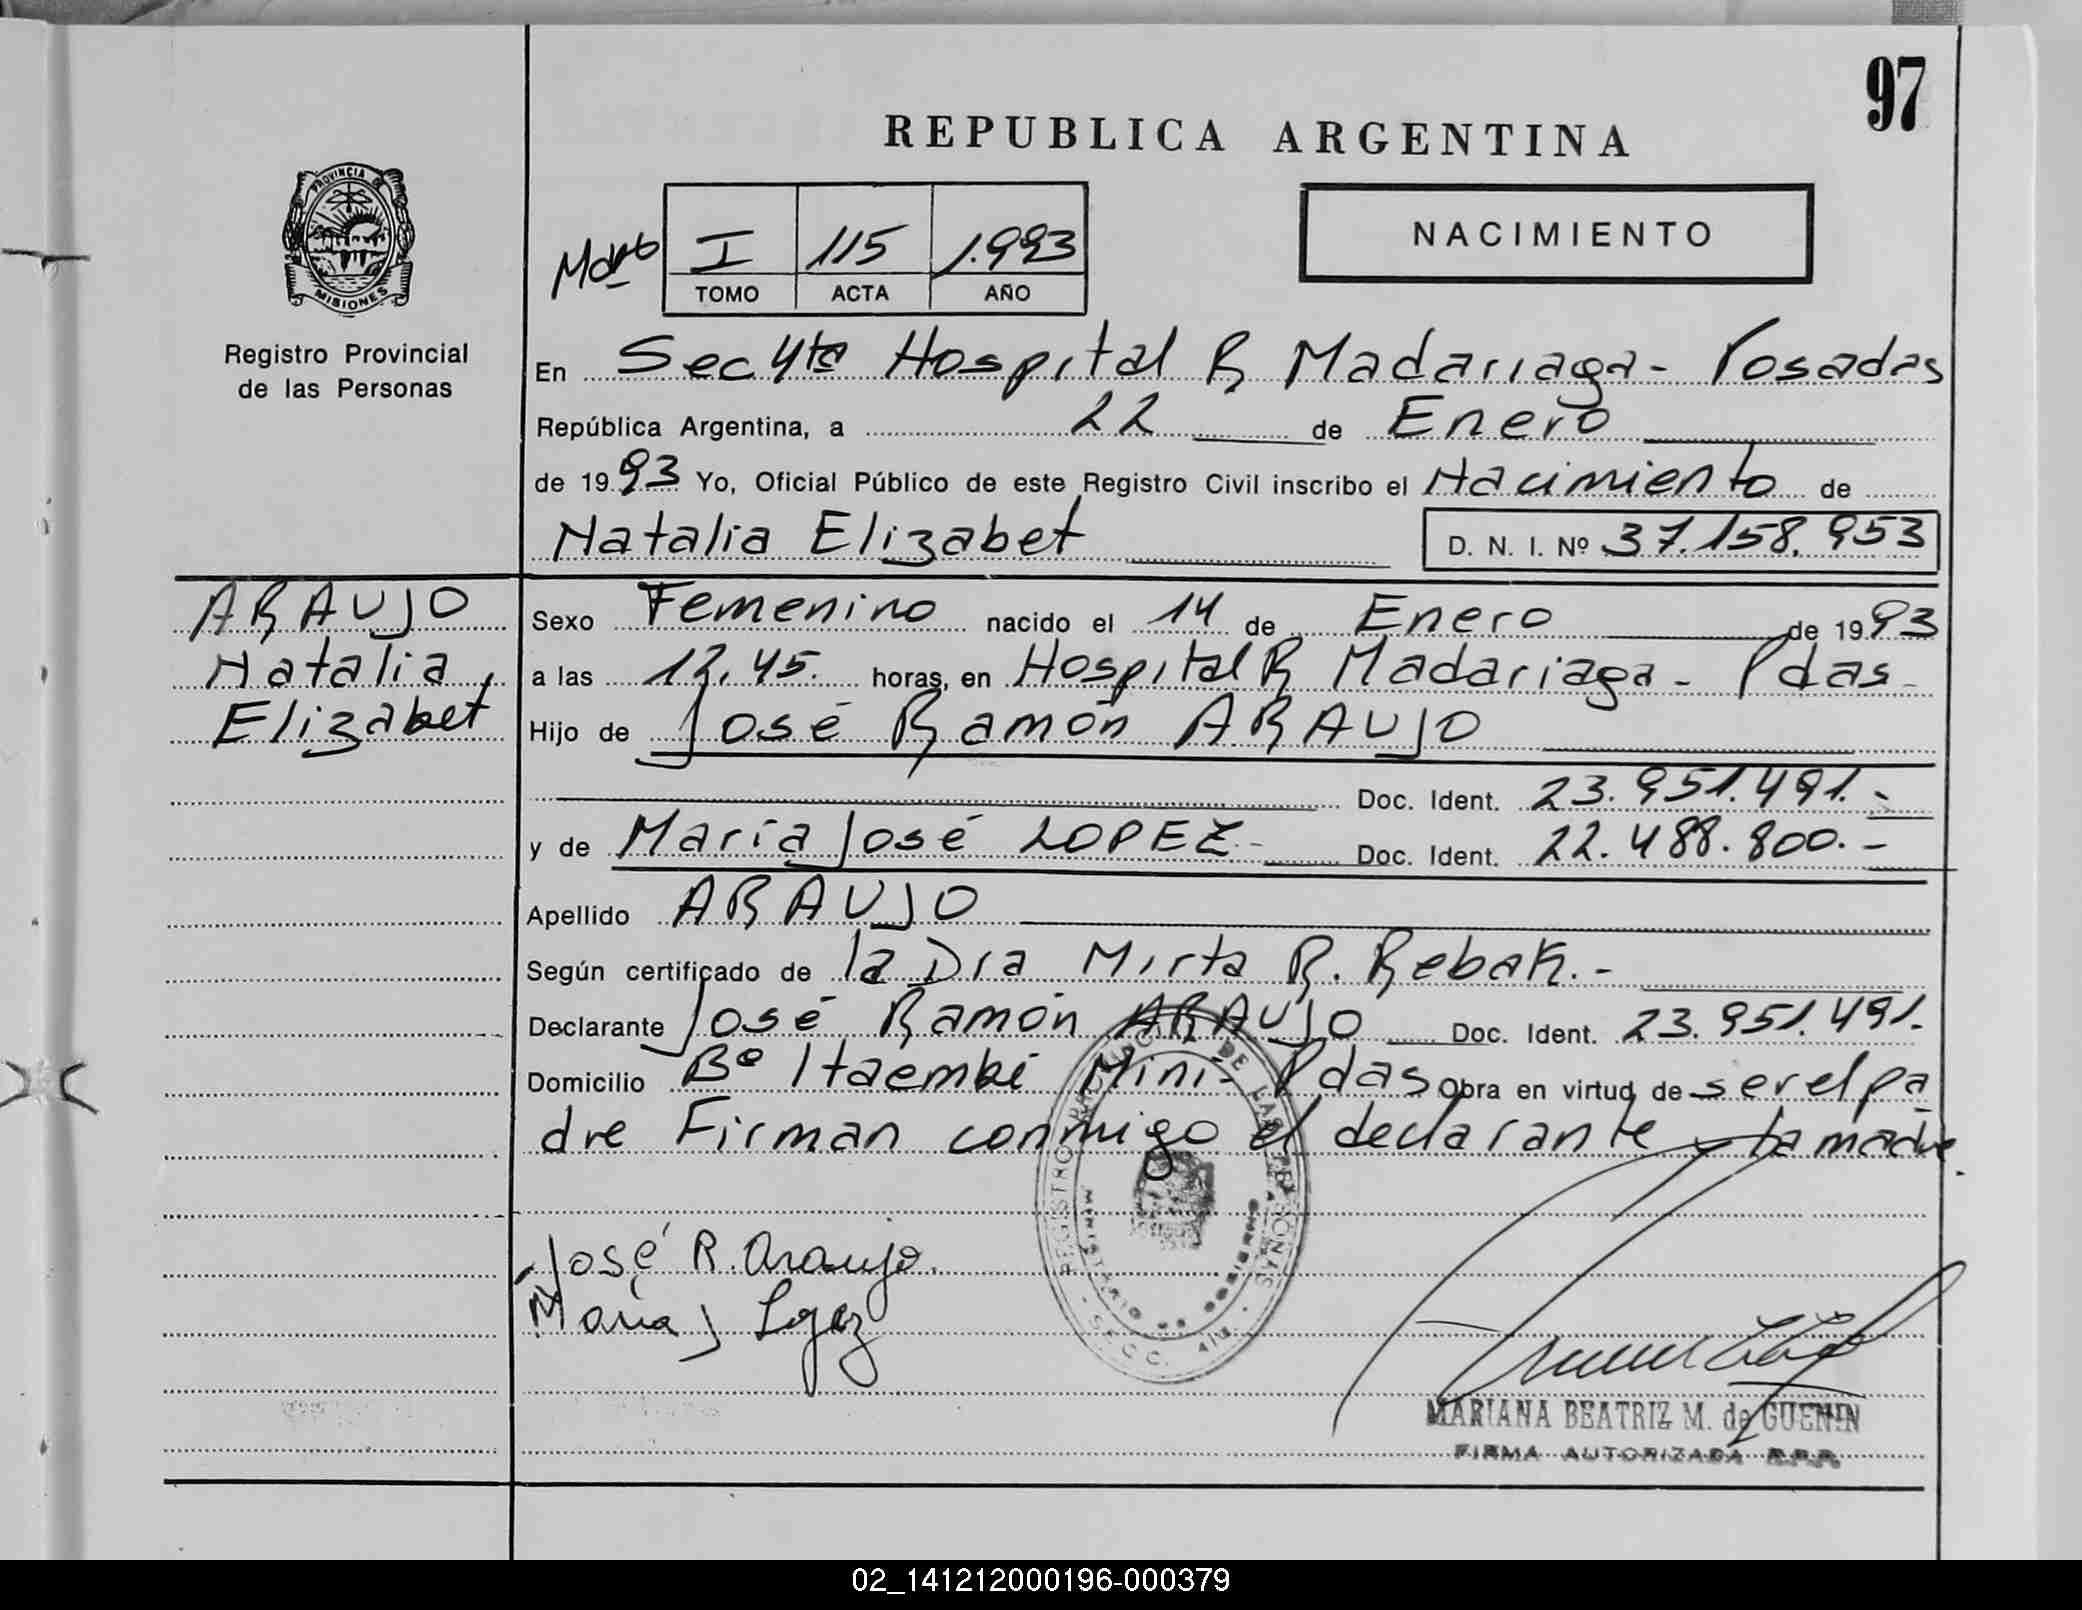 97
REPUBLICA ARGENTINA
PROVINCIA DE
MISIONES
Registro Provincial
de las Personas
I 115 1.993
TOMO ACTA AÑO
NACIMIENTO
En Sec 4ta Hospital R Madariaga - Posadas
República Argentina, a 22 de Enero
de 1993 Yo, Oficial Público de este Registro Civil inscribo el Nacimiento de
Natalia Elizabet D. N. I. Nº 37.158.953
ARAUJO
Natalia
Elizabet
Sexo Femenino nacido el 14 de Enero de 1993
a las 12,45. horas, en Hospital R Madariaga - Pdas -
Hijo de José Ramón ARAUJO
Doc. Ident. 23.951.491.-
y de María José LOPEZ - Doc. Ident. 22.488.800.-
Apellido ARAUJO
Según certificado de la Dra Mirta R. Rebak.-
Declarante José Ramón ARAUJO Doc. Ident. 23.951.491.
Domicilio Bº Itaembé Mini - Pdas Obra en virtud de ser el pa
dre Firman conmigo el declarante y la madre.
José R. Araujo.
María J Lopez
REGISTRO PROVINCIAL DE LAS PERSONAS
MINISTERIO DE GOBIERNO
SECC. 4ta.
MARIANA BEATRIZ M. de GUENIN
FIRMA AUTORIZADA R.P.P.
02_141212000196-000379